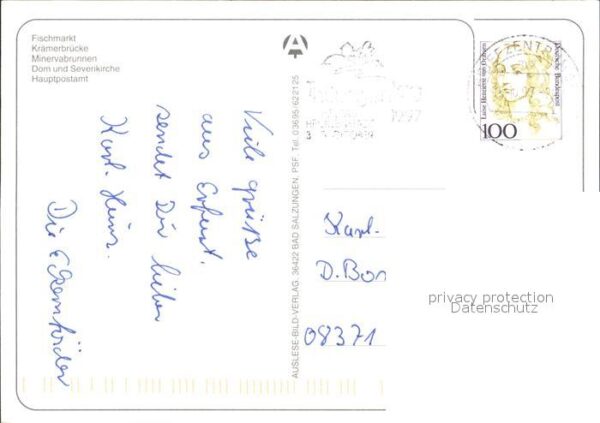 Fischmarkt
Krämerbrücke
Minervabrunnen
Dom und Severikirche
Hauptpostamt
Viele grüße
aus Erfurt,
sendet Dir lieber
Karl-Heinz.
Die Eckernförder
AUSLESE-BILD-VERLAG, 36422 BAD SALZUNGEN, PSF. Tel. 03695/622125
1997
BRIEFZENTRUM
Luise Henriette von Oranien
Deutsche Bundespost
100
Karl-
D. Bon
08371
privacy protection
Datenschutz